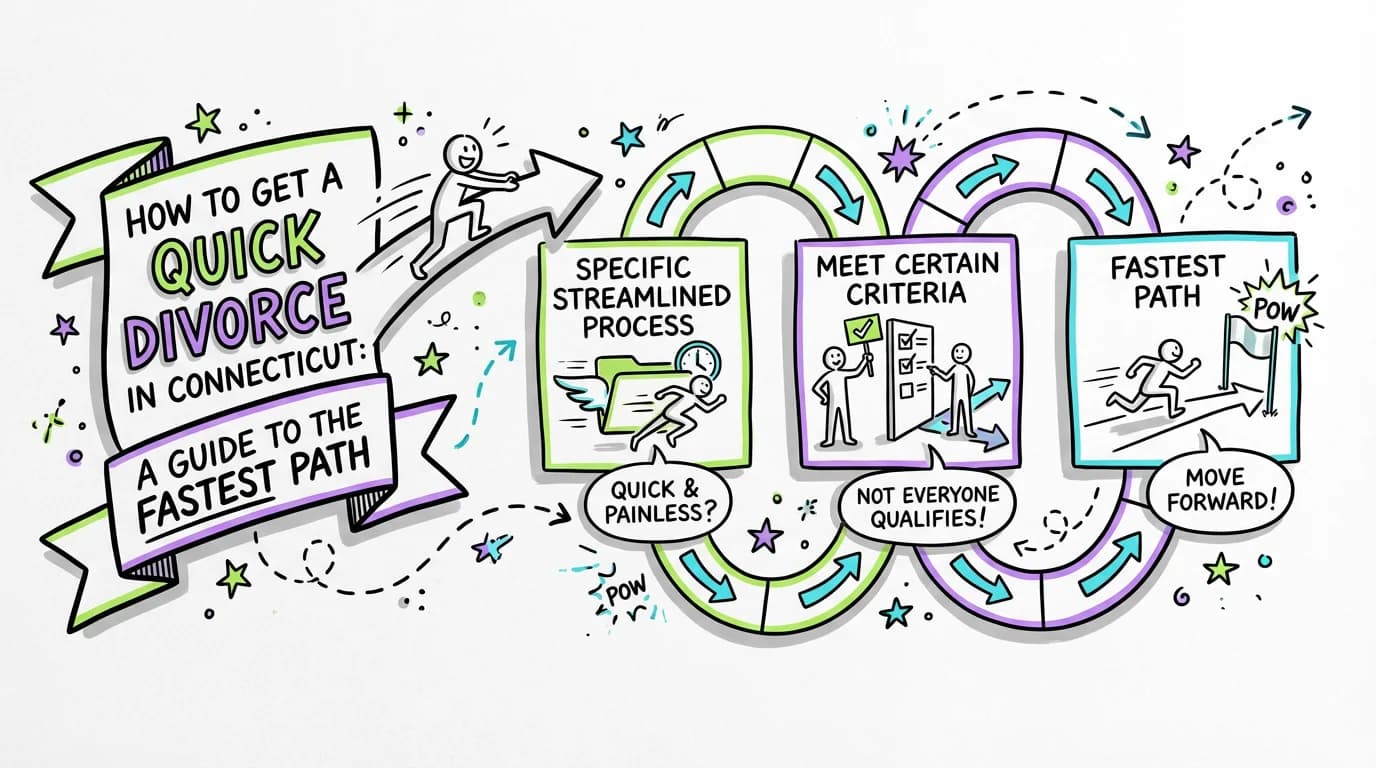 HOW TO GET A
QUICK
DIVORCE
IN CONNECTICUT:
A GUIDE TO THE
FASTEST PATH
SPECIFIC
STREAMLINED
PROCESS
QUICK &
PAINLESS?
POW
MEET CERTAIN
CRITERIA
NOT EVERYONE
QUALIFIES!
FASTEST
PATH
POW
MOVE
FORWARD!